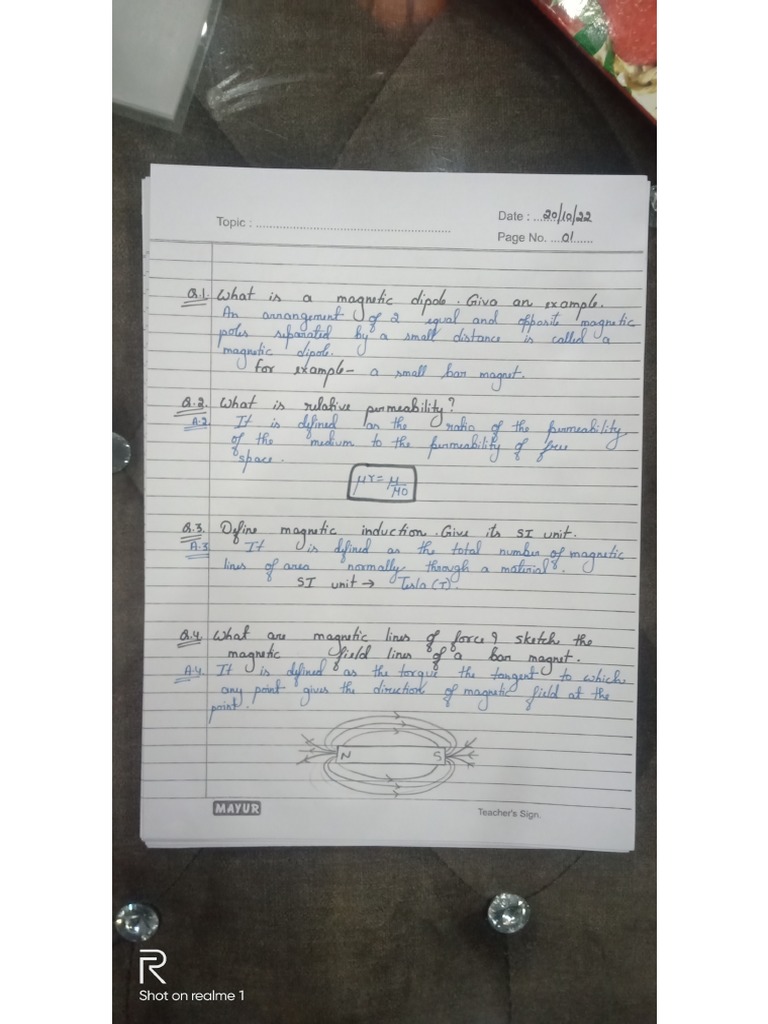 Topic : ........................................................
Date : ...20/10/22
Page No. ...01......
Q.1. What is a magnetic dipole. Give an example.
An arrangement of 2 equal and opposite magnetic
poles separated by a small distance is called a
magnetic dipole.
for example- a small bar magnet.
Q.2. What is relative permeability?
A.2 It is defined as the ratio of the permeability
of the medium to the permeability of free
space.
μr = μ/μ0
Q.3. Define magnetic induction. Give its SI unit.
A.3 It is defined as the total number of magnetic
lines of area normally through a material.
SI unit → Tesla (T).
Q.4. What are magnetic lines of force? sketch the
magnetic field lines of a bar magnet.
A.4. It is defined as the torque the tangent to which
any point gives the direction of magnetic field at the
point.
N S
MAYUR
Teacher's Sign.
R
Shot on realme 1